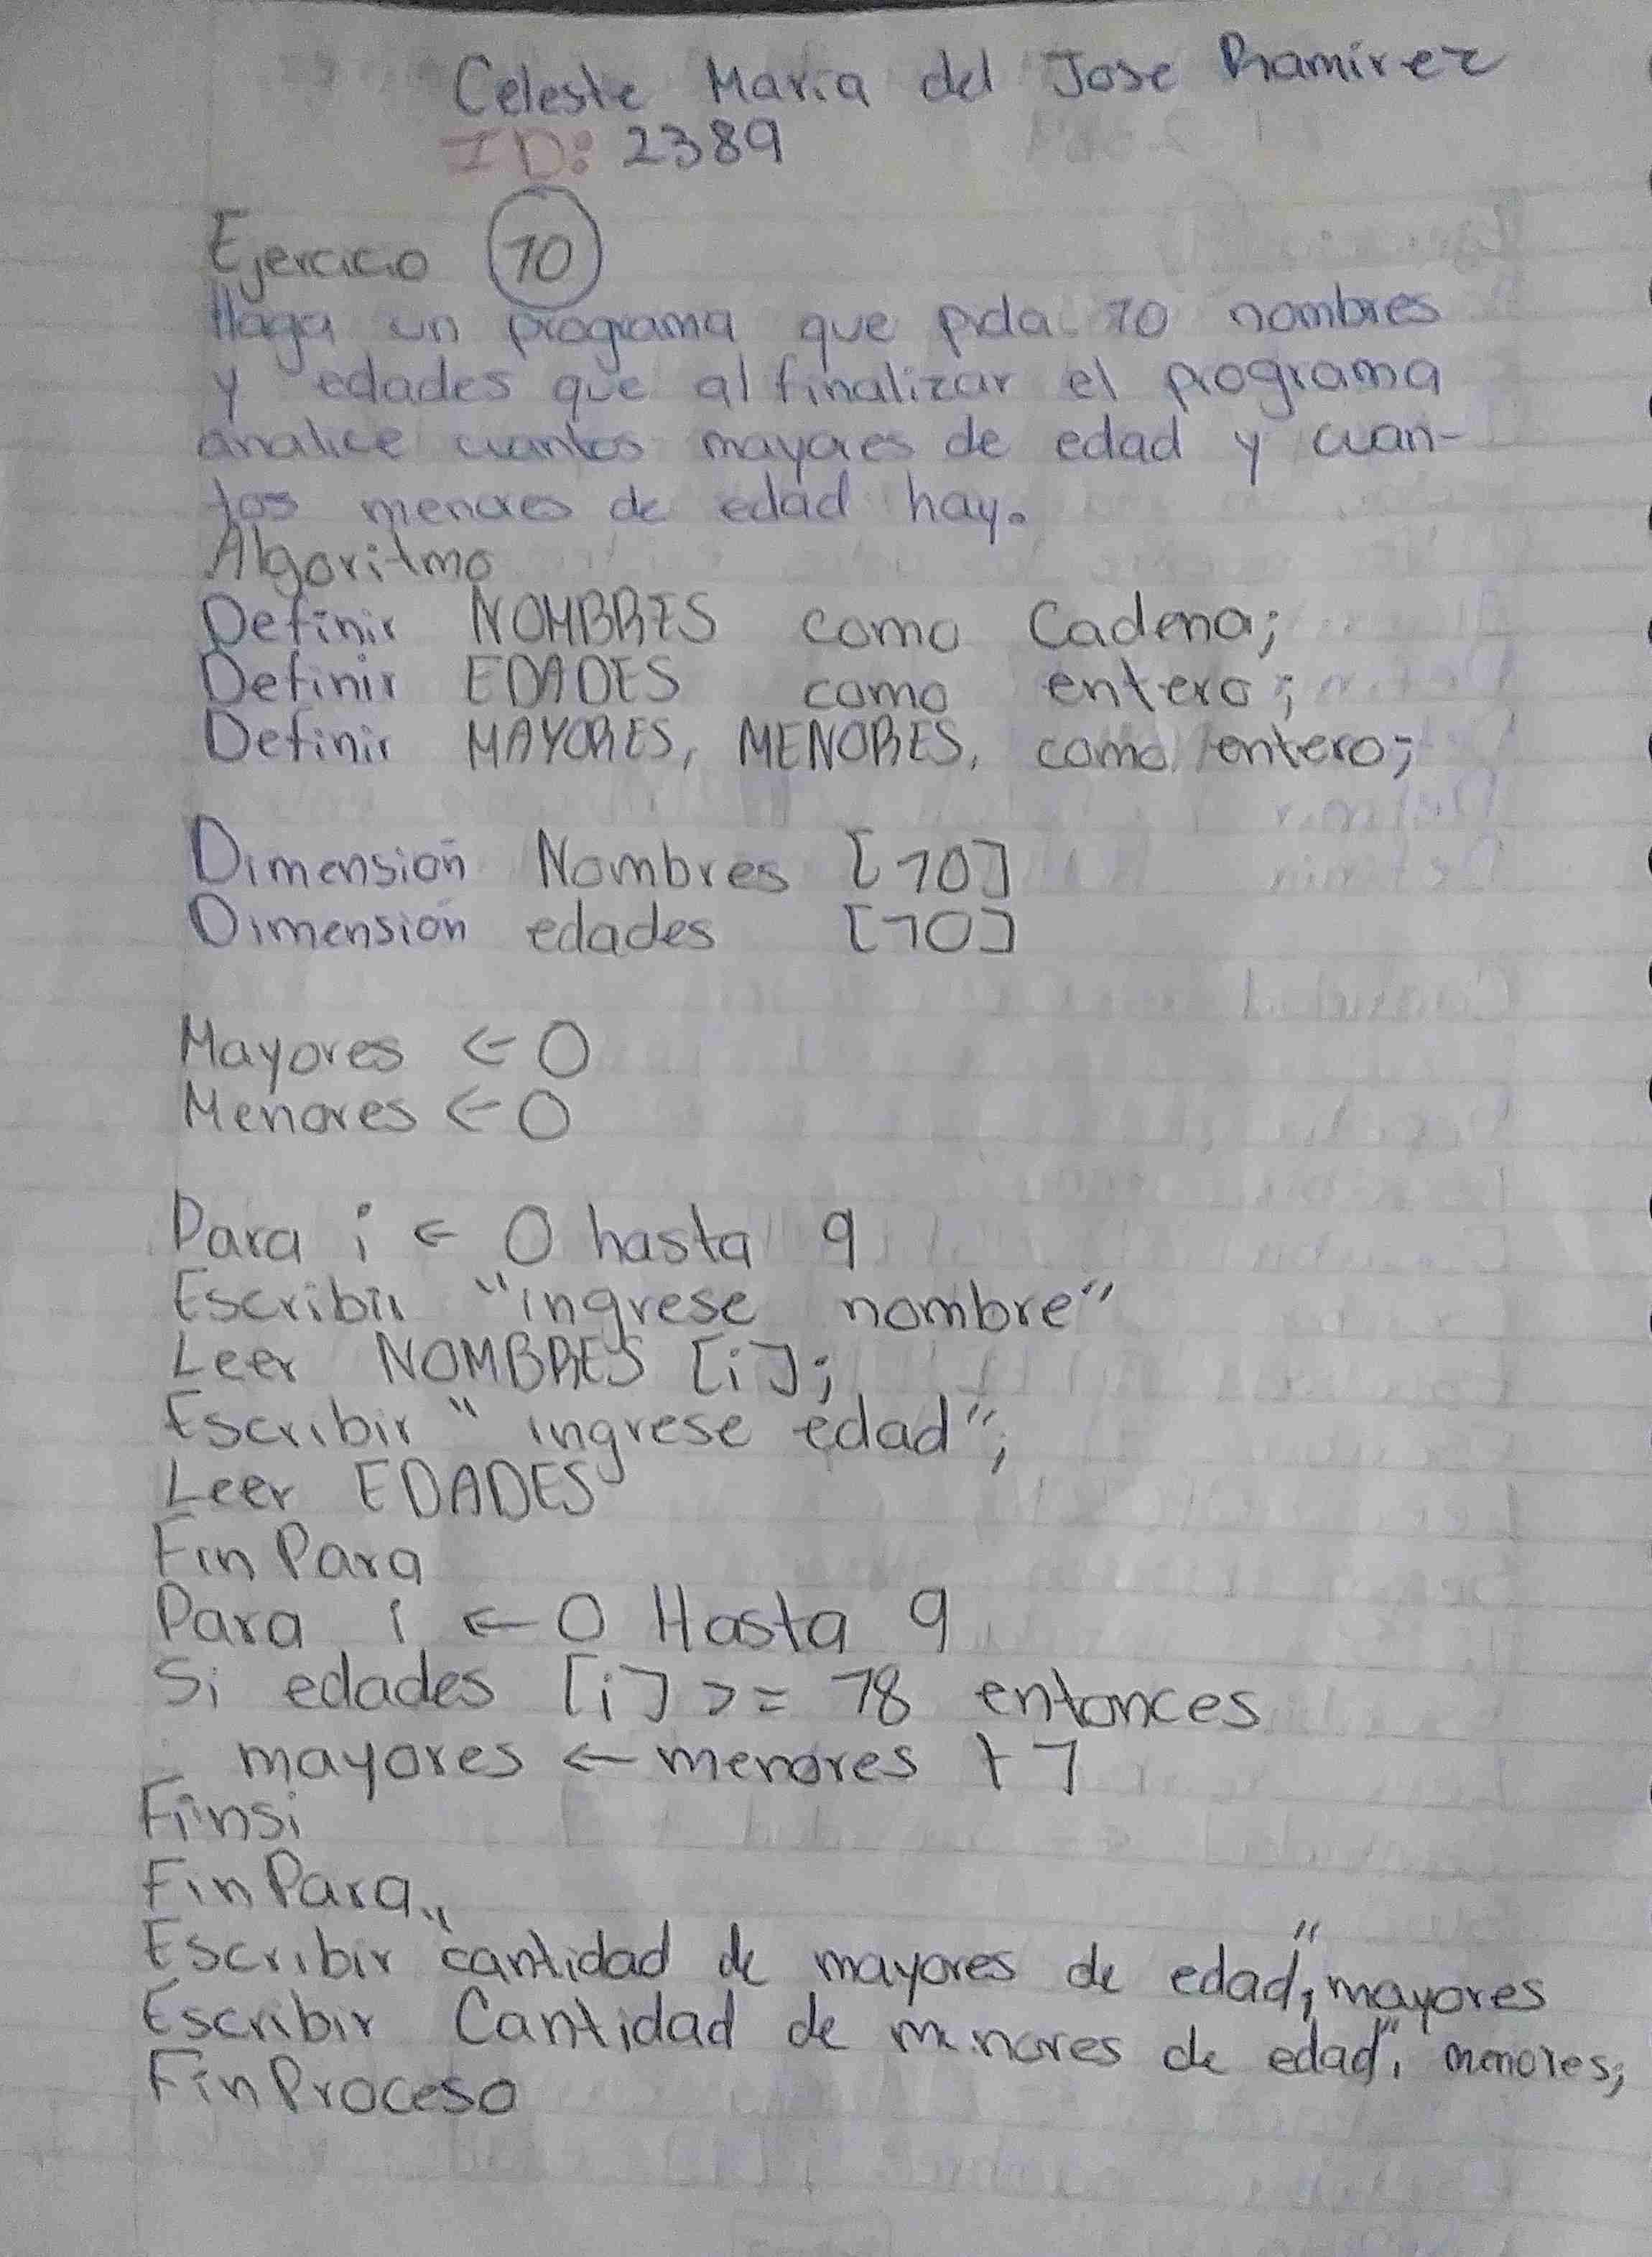 Celeste Maria del Jose Ramirez
ID: 2389
Ejercicio 10
Haga un programa que pida 10 nombres
y edades que al finalizar el programa
analice cuantos mayores de edad y cuan-
tos menores de edad hay.
Algoritmo
Definir NOMBRES como Cadena;
Definir EDADES como entero;
Definir MAYORES, MENORES, como entero;
Dimensión Nombres [10]
Dimensión edades [10]
Mayores ← 0
Menores ← 0
Para i ← 0 hasta 9
Escribir "ingrese nombre"
Leer NOMBRES [i];
Escribir "ingrese edad";
Leer EDADES
Fin Para
Para i ← 0 Hasta 9
Si edades [i] >= 18 entonces
mayores ← menores + 1
Finsi
Fin Para
Escribir "cantidad de mayores de edad", mayores
Escribir Cantidad de menores de edad", menores;
FinProceso